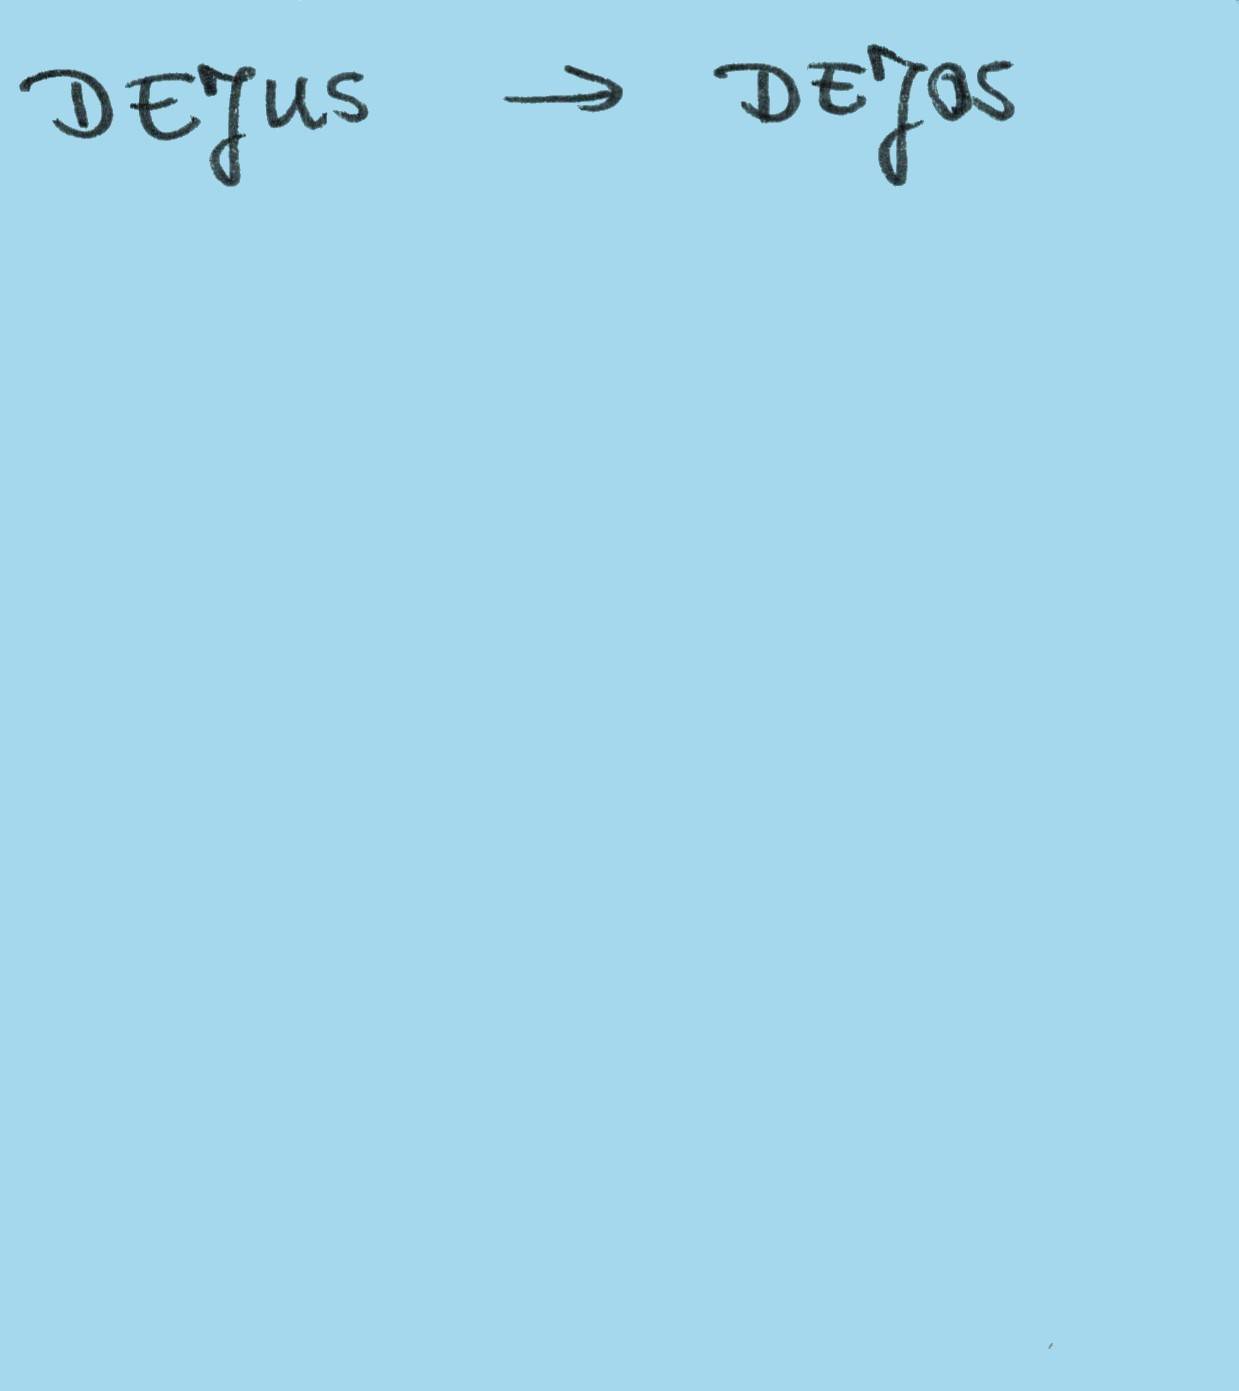 DEJUS → DEJOS